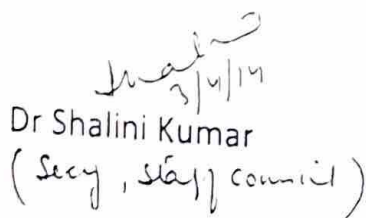 3/4/14
Dr Shalini Kumar
(Secy, Staff Council)